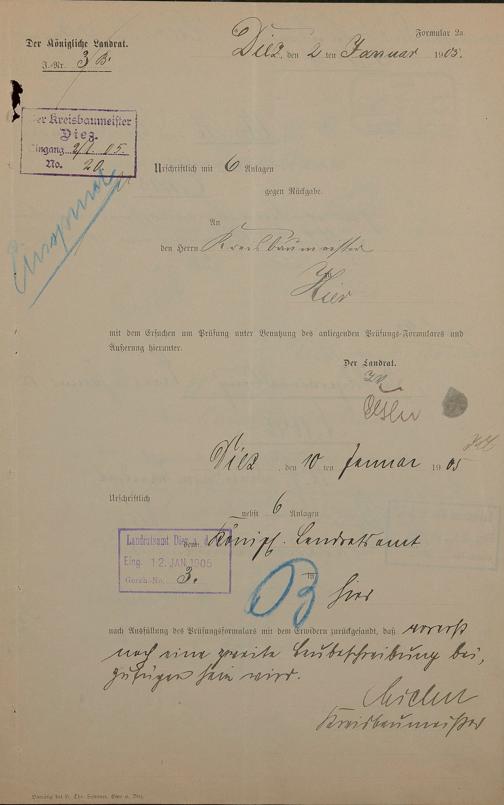 Der Königliche Landrat.
J.-Nr. 3 B.
Formular 2a
Diez, den 2 ten Januar 1905.
Der Kreisbaumeister
Diez.
Eingang 2/1. 05.
No. 20
Urschriftlich mit 6 Anlagen
gegen Rückgabe.
An
den Herrn Kreisbaumeister
Hier
mit dem Ersuchen um Prüfung unter Benutzung des anliegenden Prüfungs-Formulares und
Äußerung hierunter.
Der Landrat.
Diez, den 10 ten Januar 1905
Urschriftlich
nebst 6 Anlagen
Landratsamt Diez a. d.
Eing. 12. JAN 1905
Gesch.-No. 3.
dem Königl. Landratsamt
B
hier
nach Ausfüllung des Prüfungsformulars mit dem Erwidern zurückgesandt, daß vorerst
noch eine zweite Baubeschreibung bei,
zufügen sein wird.
Kreisbaumeister